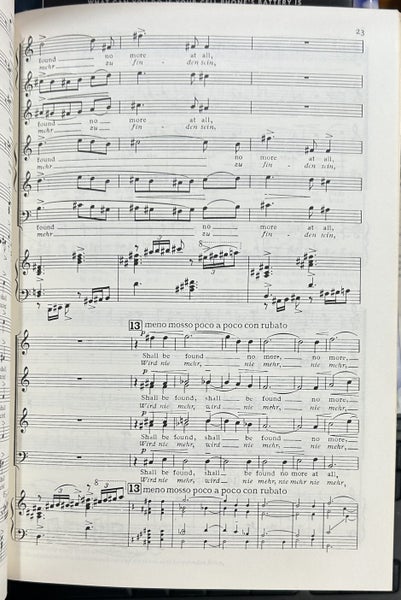 WHAT YOUR CELL PHONE'S BATTERY IS
23
found no more at all,
mehr zu fin - den sein,
found no more at all,
mehr zu fin - den sein,
found no more at all,
mehr zu fin - den sein,
found no more at all,
mehr zu fin - den sein,
8
13 meno mosso poco a poco con rubato
p
Shall be found no more, no more,
Wird nie mehr, nie mehr, nie mehr,
p
Shall be found, shall be found no more,
Wird nie mehr, wird nie mehr, nie mehr,
p
Shall be found, shall be found no more,
Wird nie mehr, wird nie mehr, nie mehr,
p
Shall be found, shall be found no more at all,
Wird nie mehr, wird nie mehr, nie mehr nie mehr,
8
3
13 meno mosso poco a poco con rubato
p